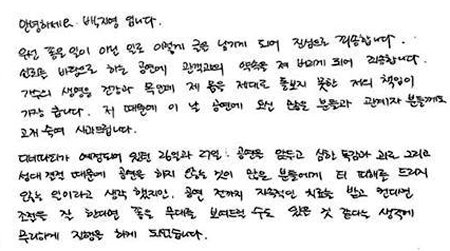 안녕하세요. 백지영 입니다.
우선 좋은 일이 아닌 일로 이렇게 글을 남기게 되어 진심으로 죄송합니다.
신뢰를 바탕으로 하는 공연에 관객과의 약속을 져 버리게 되어 죄송합니다.
가수의 생명인 건강과 목인데 제 몸을 제대로 돌보지 못한 저의 책임이
가장 큽니다. 저 때문에 이 날 공연에 오신 많은 분들과 관계자 분들께도
고개 숙여 사과드립니다.
티켓팅이 예정되어 있던 26일과 27일 공연을 앞두고 심한 독감과 과로 그리고
성대결절 때문에 공연을 하지 않는 것이 많은 분들에게 더 피해를 드리지
않는 일이라고 생각했지만, 공연 전까지 지속적인 치료를 받고 컨디션
조절을 잘 한다면 좋은 무대를 보여드릴 수도 있을 것 같다는 생각에
무리하게 진행을 하게 되었습니다.